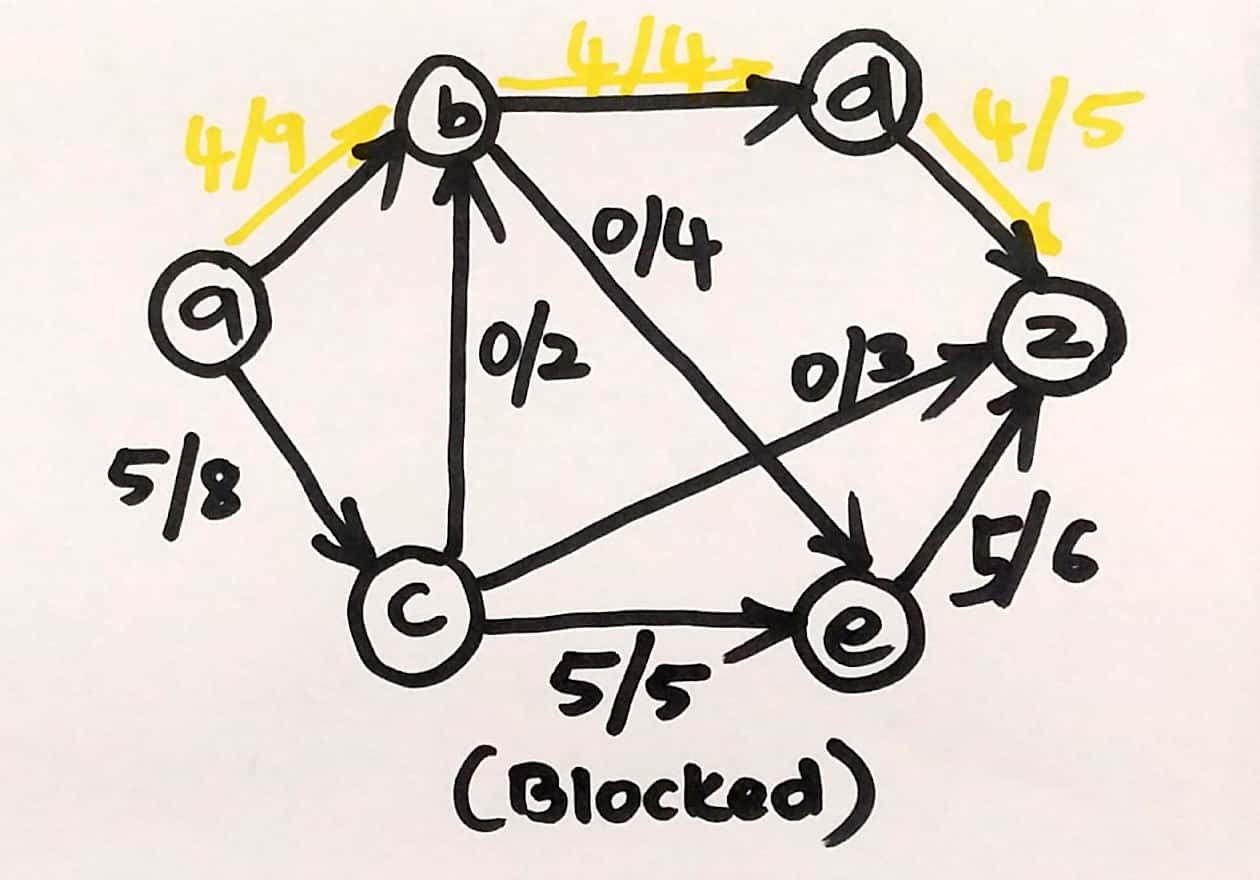 4/4
b
d
4/9
4/5
0/4
a
0/2
0/3
z
5/8
5/6
c
e
5/5
(Blocked)